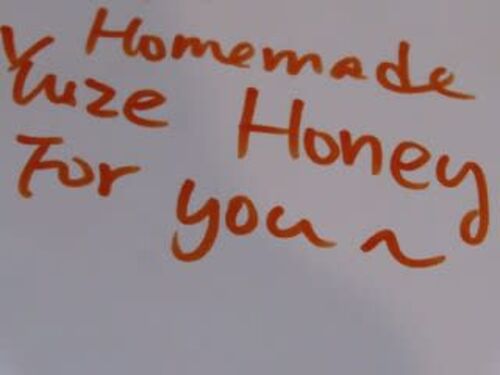 Homemade
Yuze Honey
For you ~